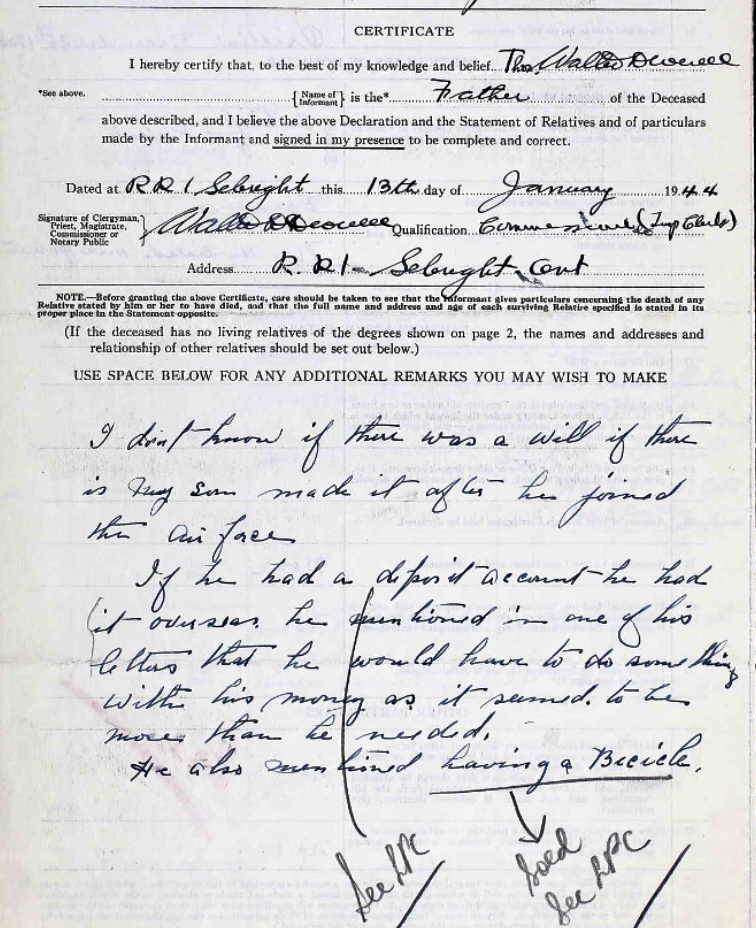 CERTIFICATE
I hereby certify that, to the best of my knowledge and belief Thos. Walter
*See above. { Name of Informant } is the* Father of the Deceased
above described, and I believe the above Declaration and the Statement of Relatives and of particulars
made by the Informant and signed in my presence to be complete and correct.
Dated at RR 1 Sebright this 13th day of January 1944
Signature of Clergyman, Priest, Magistrate, Commissioner or Notary Public } Walter Qualification
Address R.R 1 - Sebright. Ont
NOTE.—Before granting the above Certificate, care should be taken to see that the Informant gives particulars concerning the death of any
Relative stated by him or her to have died, and that the full name and address and age of each surviving Relative specified is stated in its
proper place in the Statement opposite.
(If the deceased has no living relatives of the degrees shown on page 2, the names and addresses and
relationship of other relatives should be set out below.)
USE SPACE BELOW FOR ANY ADDITIONAL REMARKS YOU MAY WISH TO MAKE
I don't know if there was a will if there
is my son made it after he joined
the air force
If he had a deposit account he had
it overseas. he mentioned in one of his
letters that he would have to do something
with his money as it seemed to be
more than he needed.
He also mentioned having a Bicicle.
See LPC
Sold
See LPC